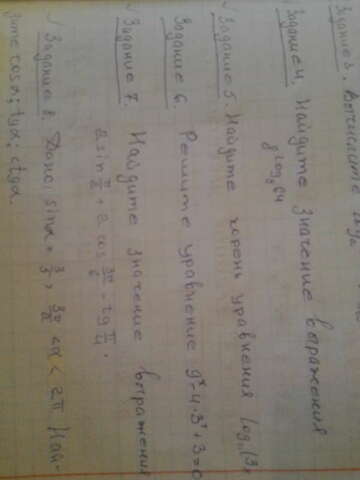 Задание 3. Вычислите
Задание 4. Найдите значение выражения
8^log₈64
Задание 5. Найдите корень уравнения log₂(3x
Задание 6. Решите уравнение 9ˣ-4·3ˣ+3=0
Задание 7. Найдите значение выражения
2 sin π/2 + 2 cos 3π/6 - tg π/4.
Задание 8. Дано: sinα = 3/5, 3π/2 < α < 2π. Най-
дите cosα; tgα; ctgα